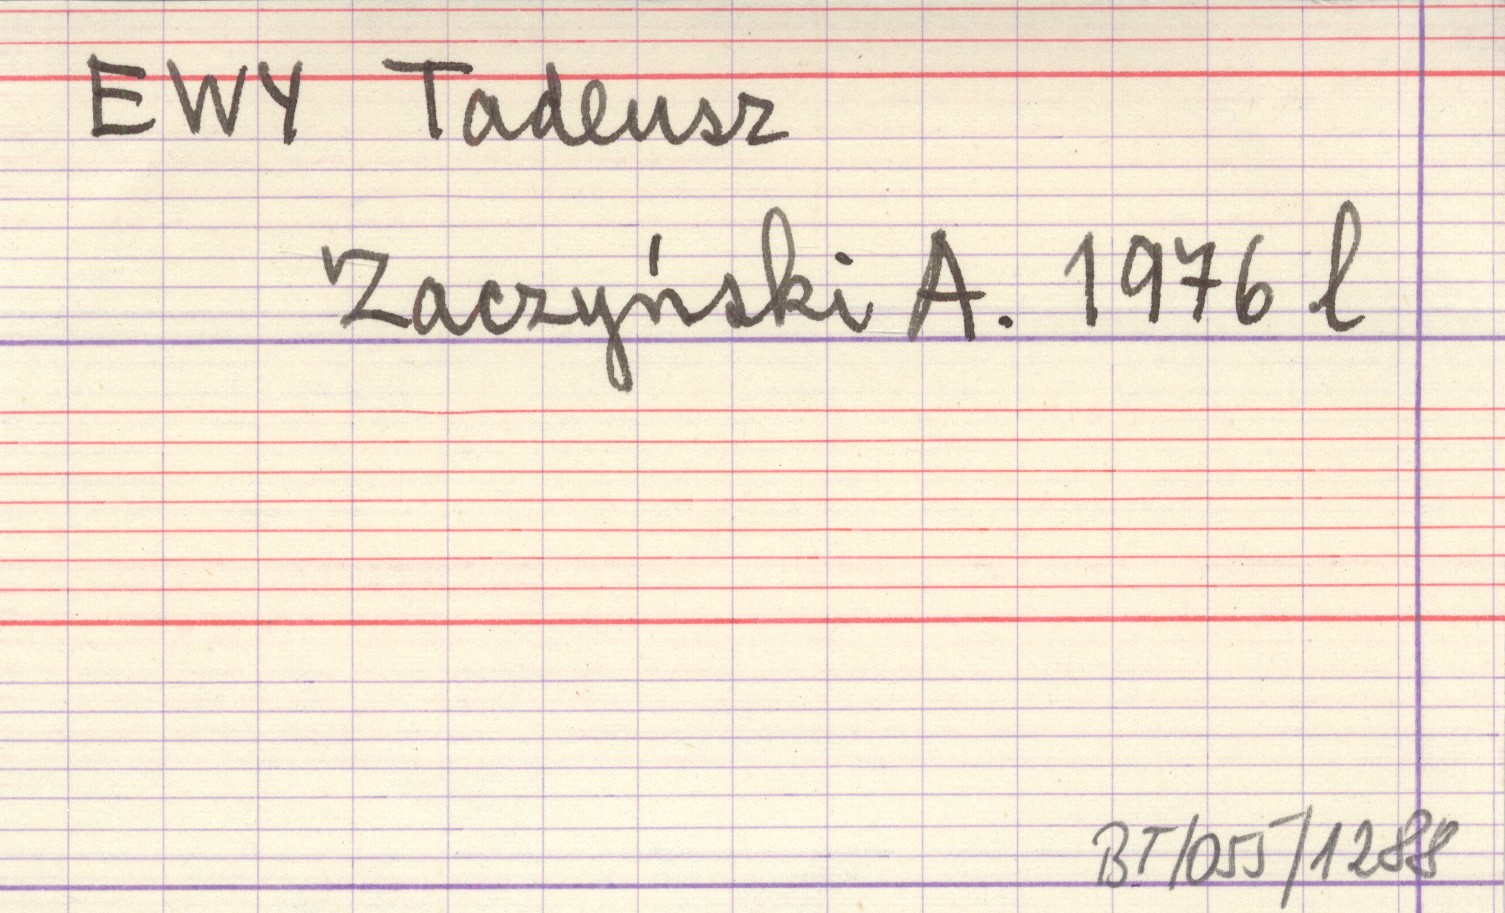 EWY Tadeusz
Zaczyński A. 1976 l
BT/055/1288